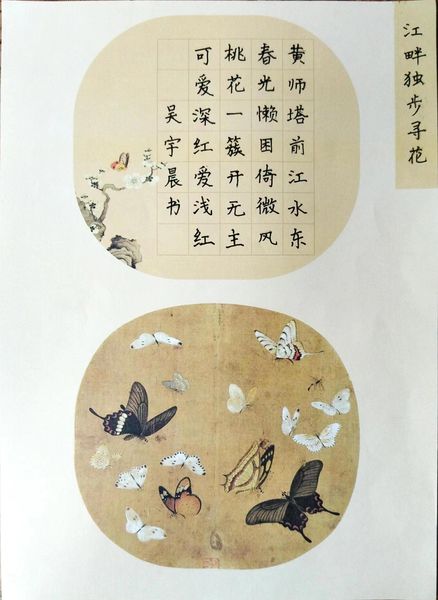 江畔独步寻花
黄师塔前江水东
春光懒困倚微风
桃花一簇开无主
可爱深红爱浅红
吴宇晨书